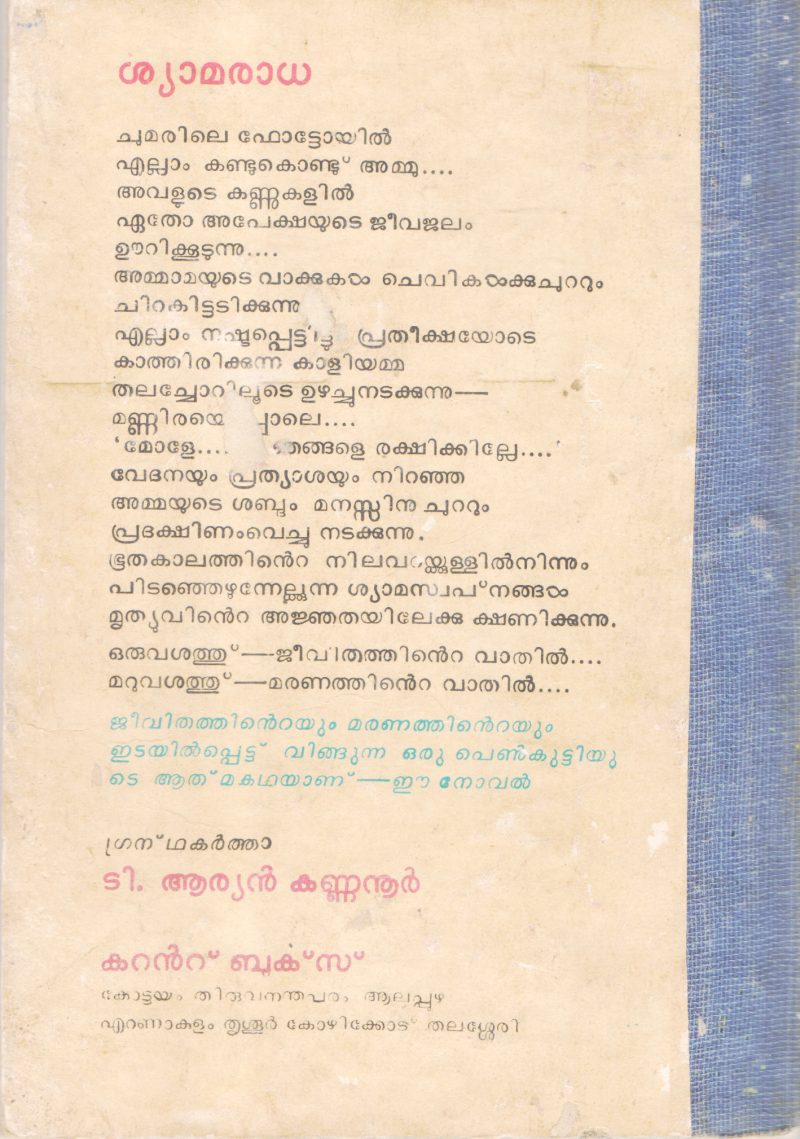 ശ്യാമരാധ
ചുമരിലെ ഫോട്ടോയിൽ
എല്ലാം കണ്ടുകൊണ്ടു് അമ്മു....
അവളുടെ കണ്ണുകളിൽ
ഏതോ അപേക്ഷയുടെ ജീവജലം
ഊറിക്കൂടുന്നു....
അമ്മാമയുടെ വാക്കുകൾ ചെവികൾക്കുചുററും
ചിറകിട്ടടിക്കുന്നു
എല്ലാം പ്രതീക്ഷയോടെ
കാത്തിരിക്കുന്ന കാളിയമ്മ
തലച്ചോറിലൂടെ ഉഴച്ചുനടക്കുന്നു—
....
'മോളേ.... രക്ഷിക്കില്ലേ....'
വേദനയും പ്രത്യാശയും നിറഞ്ഞ
അമ്മയുടെ ശബ്ദം മനസ്സിനു ചുററും
പ്രദക്ഷിണംവെച്ചു നടക്കുന്നു.
ഭൂതകാലത്തിൻെറ നിലവറയ്ക്കുള്ളിൽനിന്നും
പിടഞ്ഞെഴുന്നേല്ക്കുന്ന ശ്യാമസ്വപ്‌നങ്ങൾ
മൃത്യുവിൻെറ അജ്ഞതയിലേക്കു ക്ഷണിക്കുന്നു.
ഒരുവശത്തു്—ജീവിതത്തിൻെറ വാതിൽ....
മറുവശത്തു്—മരണത്തിൻെറ വാതിൽ....
ജീവിതത്തിൻെറയും മരണത്തിൻെറയും
ഇടയിൽപ്പെട്ട് വിങ്ങുന്ന ഒരു പെൺകുട്ടിയു
ടെ ആത്മകഥയാണ്—ഈ നോവൽ
ഗ്രന്ഥകർത്താ
ടി. ആര്യൻ കണ്ണനൂർ
കറൻറ് ബുക്സ്
കോട്ടയം തിരുവനന്തപുരം ആലപ്പുഴ
എറണാകുളം തൃശൂർ കോഴിക്കോട് തലശ്ശേരി